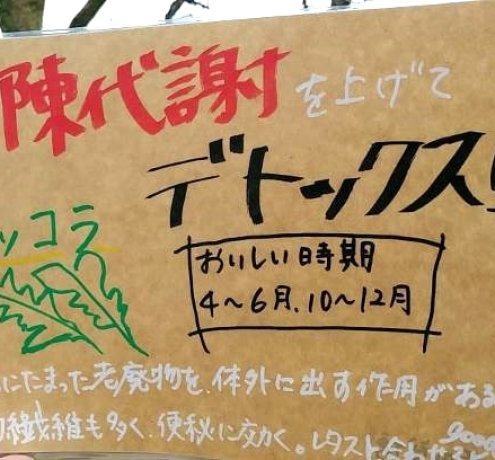 陳代謝を上げて
デトックス!
ッコラ
おいしい時期
4〜6月、10〜12月
にたまった老廃物を、体外に出す作用がある
繊維も多く、便秘に効く。レタスと合わせ
good